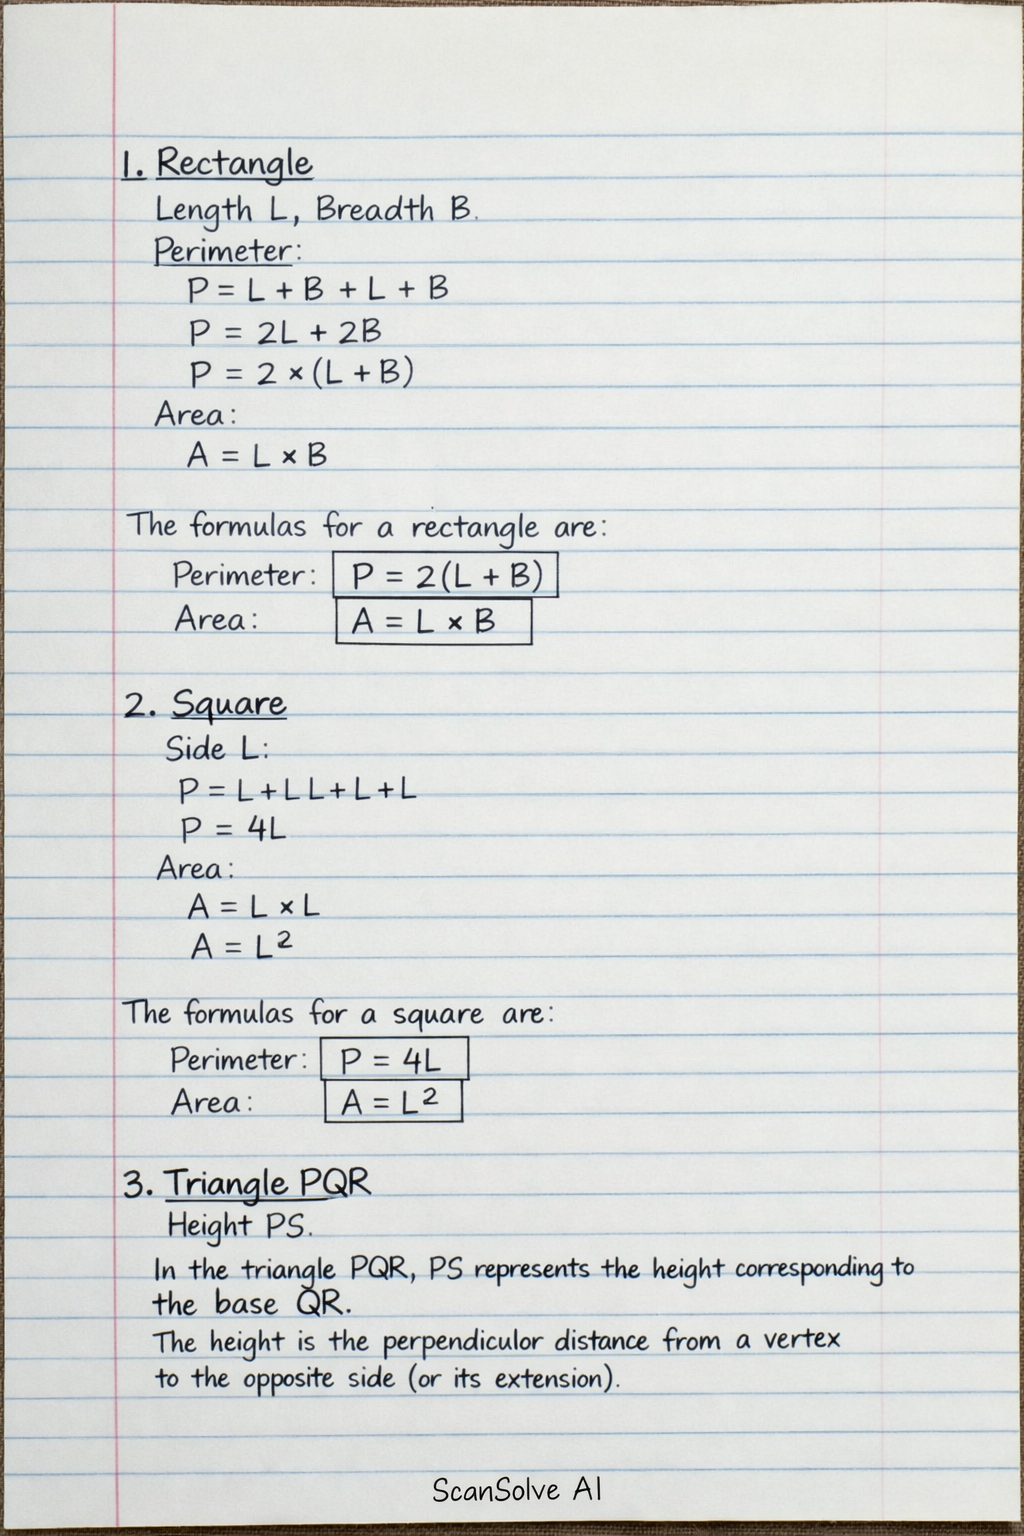 1. Rectangle
Length L, Breadth B.
Perimeter:
P = L + B + L + B
P = 2L + 2B
P = 2 × (L + B)
Area:
A = L × B
The formulas for a rectangle are:
Perimeter: P = 2(L + B)
Area: A = L × B
2. Square
Side L:
P = L+LL+L+L
P = 4L
Area:
A = L × L
A = L²
The formulas for a square are:
Perimeter: P = 4L
Area: A = L²
3. Triangle PQR
Height PS.
In the triangle PQR, PS represents the height corresponding to
the base QR.
The height is the perpendiculor distance from a vertex
to the opposite side (or its extension).
ScanSolve AI